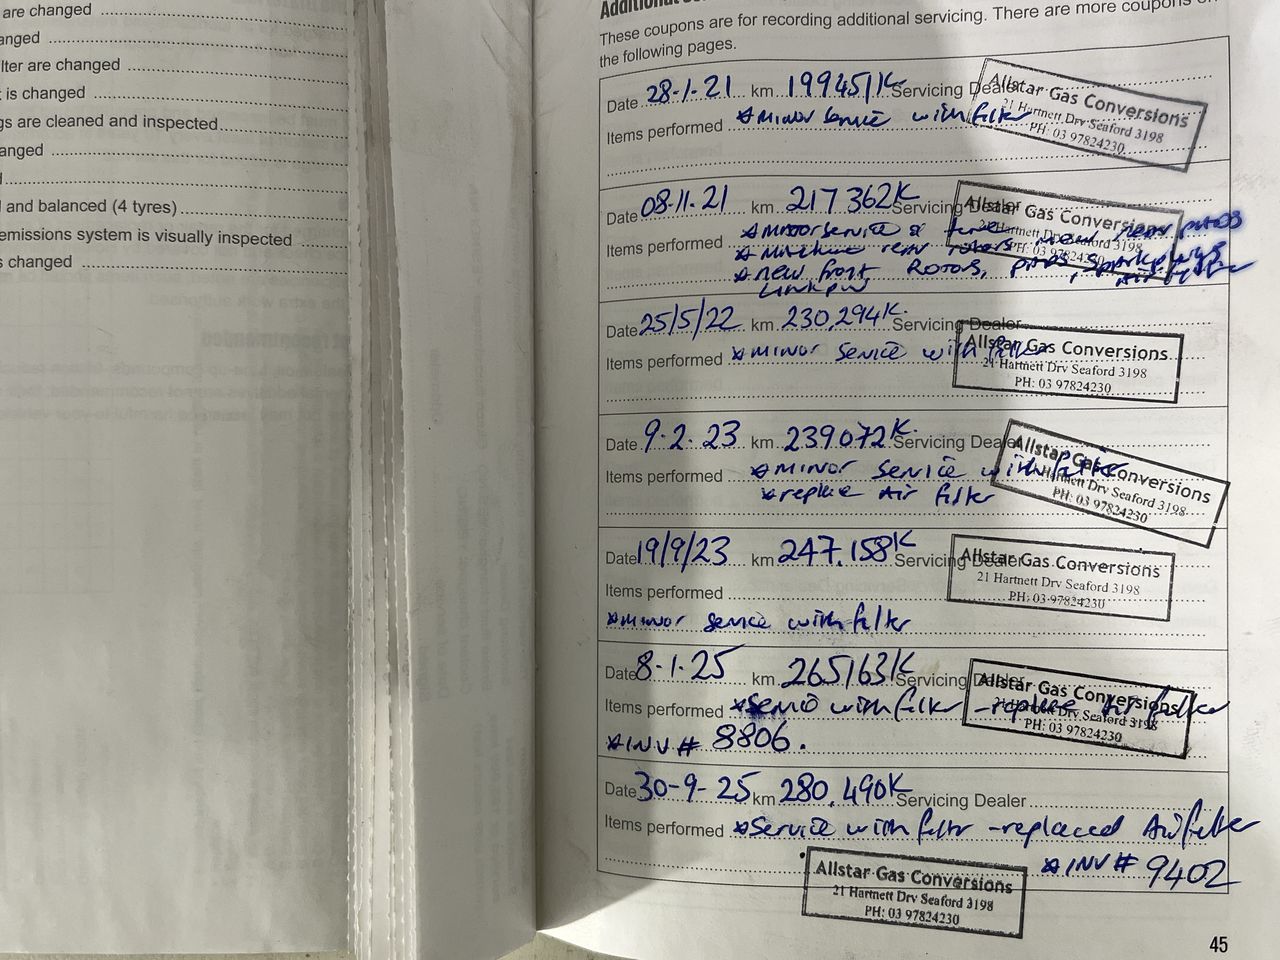 are changed
anged
lter are changed
t is changed
gs are cleaned and inspected
anged
d
l and balanced (4 tyres)
emissions system is visually inspected
s changed
Additional
These coupons are for recording additional servicing. There are more coupons on
the following pages.
Date 28-1-21 km 199451K Servicing Dealer
Items performed *minor service with filter
Allstar Gas Conversions
21 Hartnett Drv Seaford 3198
PH: 03 97824230
Date 08.11.21 km 217362K Servicing Dealer
Items performed *minor service & new rear pads
*machine rear rotors
*new front Rotors, pads, spark plugs
Link pin Air filter
Allstar Gas Conversions
21 Hartnett Drv Seaford 3198
PH: 03 97824230
Date 25/5/22 km 230,294K Servicing Dealer
Items performed *minor service with filter
Allstar Gas Conversions
21 Hartnett Drv Seaford 3198
PH: 03 97824230
Date 9.2.23 km 239072K Servicing Dealer
Items performed *minor service with filter
*replace Air filter
Allstar Gas Conversions
21 Hartnett Drv Seaford 3198
PH: 03 97824230
Date 19/9/23 km 247.158K Servicing Dealer
Items performed
*minor service with filter
Allstar Gas Conversions
21 Hartnett Drv Seaford 3198
PH: 03 97824230
Date 8-1-25 km 265163K Servicing Dealer
Items performed *Service with filter -replace Air filter
*INV# 8806.
Allstar Gas Conversions
21 Hartnett Drv Seaford 3198
PH: 03 97824230
Date 30-9-25 km 280,490K Servicing Dealer
Items performed *Service with filter -replaced Air filter
*INV# 9402
Allstar Gas Conversions
21 Hartnett Drv Seaford 3198
PH: 03 97824230
45